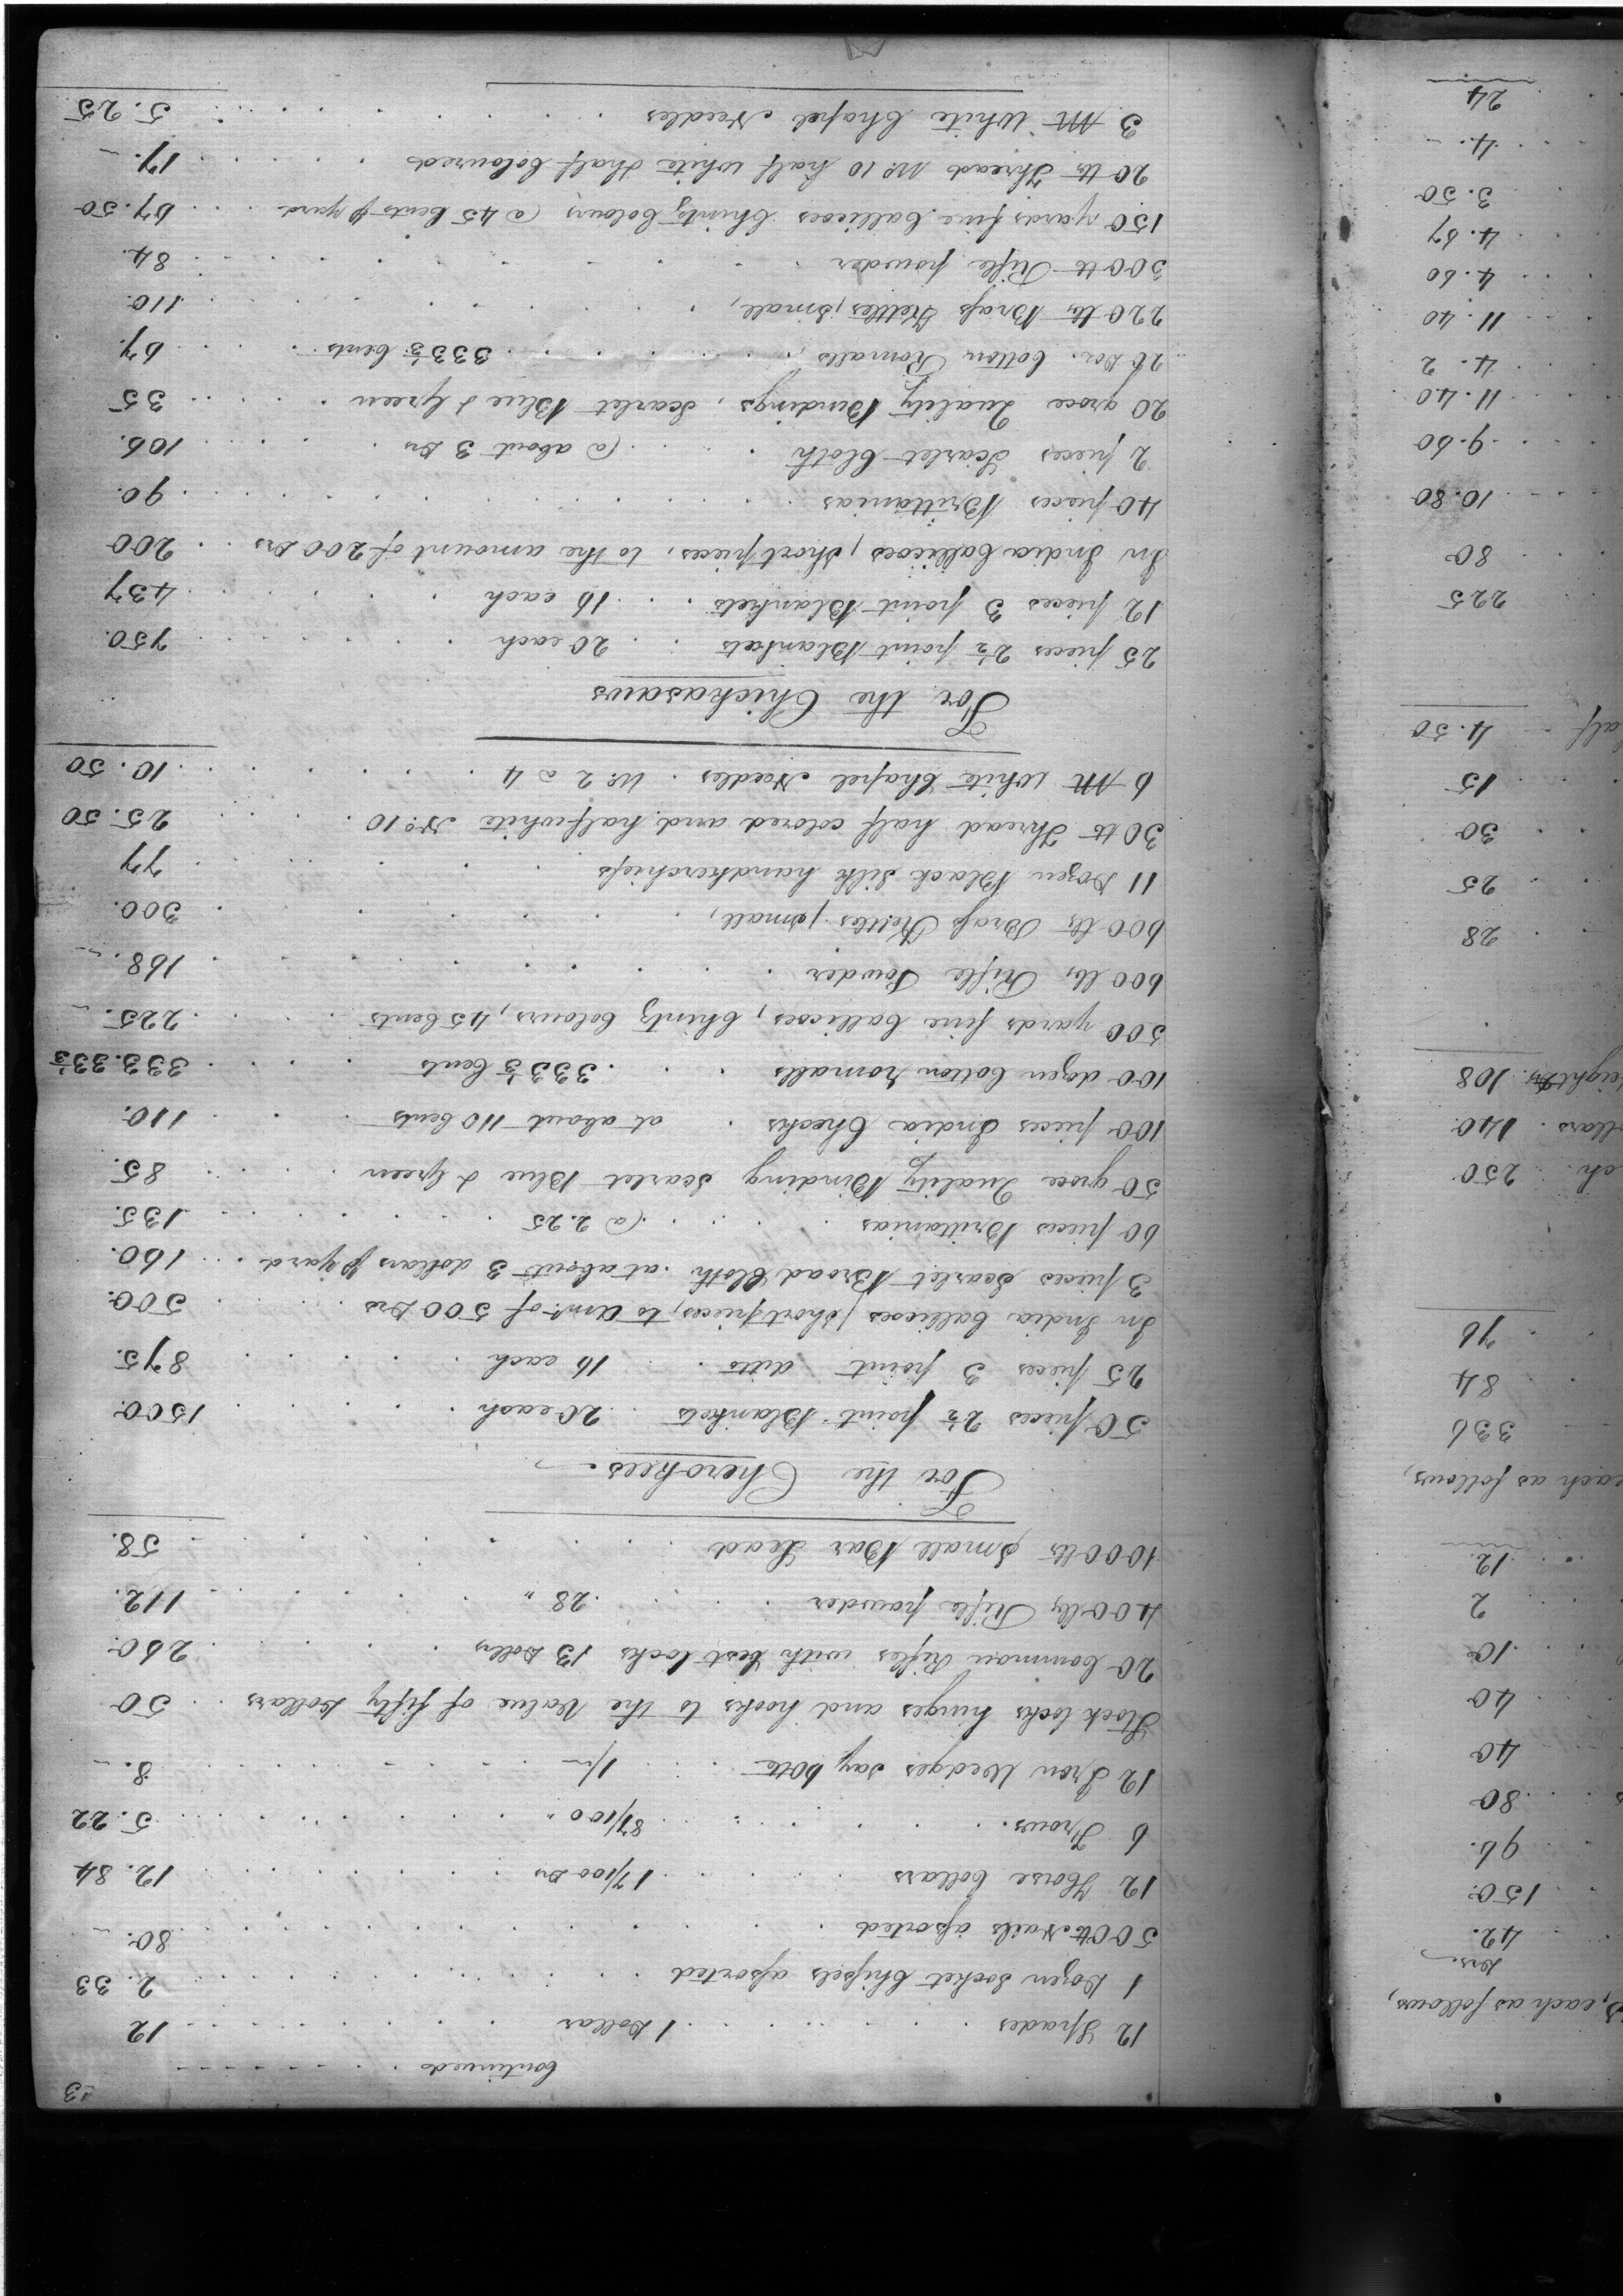 3
Continued
12 Spades 1 Dollar 12
1 Dozen Socket Chissels assorted 2.33
500 lb Nails assorted 80.
12 Horse Collars 1 7/100 Drs 12.84
6 Frows 87/100 " 5.22
12 Iron Wedges say 60 lb 8.
Stock locks hinges and hooks to the Value of fifty Dollars 50
20 Common Rifles with best locks 13 Dolls 260.
400 lbs Rifle powder 28 " 112.
1000 lbs Small Bar Lead 58.
For the Cherokees.
50 pieces 2½ point Blankets 20 each 1500.
25 pieces 3 point ditto 16 each 875.
In India Callicoes, short pieces, to amt. of 500 Drs 500.
3 pieces Scarlet Broad Cloth at about 3 dollars p Yard 160.
60 pieces Brittanias @ 2.25 135.
50 groce Quality Binding Scarlet Blue & Green 85.
100 pieces India Checks at about 110 Cents 110.
100 dozen Cotton romalls 333⅓ Cents 333.33⅓
500 yards fine Callicoes, Chintz Colours, 45 Cents 225.
600 lbs Rifle Powder 168.
600 lbs Brass Kettles, small, 300.
11 Dozen Black Silk handkerchiefs 77
30 lb Thread half colored and half white No. 10 25.50
6 M White Chapel Needles No. 2 a 4 10.50
For the Chickasaws
25 pieces 2½ point Blankets 20 each 750.
12 pieces 3 point Blankets 16 each 437
In India Callicoes, short pieces, to the amount of 200 Drs 200
40 pieces Brittanias 90.
2 pieces Scarlet Cloth @ about 3 Drs 106.
20 groce Quality Bindings, Scarlet Blue & Green 35
20 Doz. Cotton Romalls 333⅓ Cents 67.
220 lbs Brass Kettles, small, 110.
300 lb Rifle powder 84.
150 yards fine Callicoes Chintz Colours @ 45 Cents p Yard 67.50
20 lb Thread No. 10 half White & half Coloured 17.
3 M White Chapel Needles 5.25
each as follows,
Drs.
42.
150.
96.
80
40
40
10
2
12.
each as follows,
336
84
76
250
140
108
28
25
30
15
4.50
225
80
10.80
9.60
11.40
4.2
11.40
4.60
4.67
3.50
4.
24